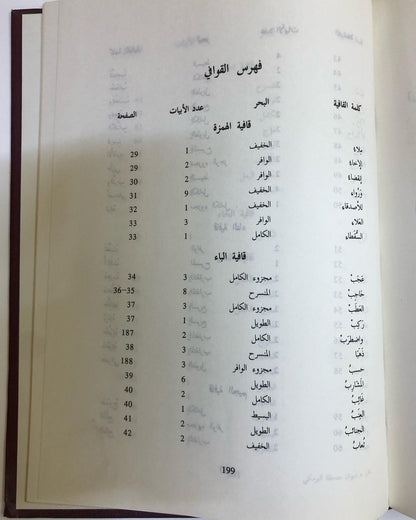 فهرس القوافي
كلمة القافية البحر عدد الأبيات الصفحة
قافية الهمزة
بلاءُ الخفيف 1 29
الإخاء الوافر 2 29
الوافر 2 30
الخفيف 9 31
للأصدقاء الخفيف 1 32
العلاء الوافر 3 33
السُّقطاء الكامل 1 33
قافية الباء
عَجَبْ مجزوء الكامل 3 34
حاجِبْ المنسرح 8 35–36
العَطَبْ مجزوء الكامل 3 37
رَكِبْ الطويل 1 37
واضطربْ الكامل 2 187
ذَهَبَا المنسرح 3 38
حسبُ مجزوء الوافر 3 188
المَشَارِبُ الطويل 6 39
غائِبُ الكامل 2 40
البسيط 1 40
الجنائبُ الطويل 2 41
تُعابُ الخفيف 2 42
199